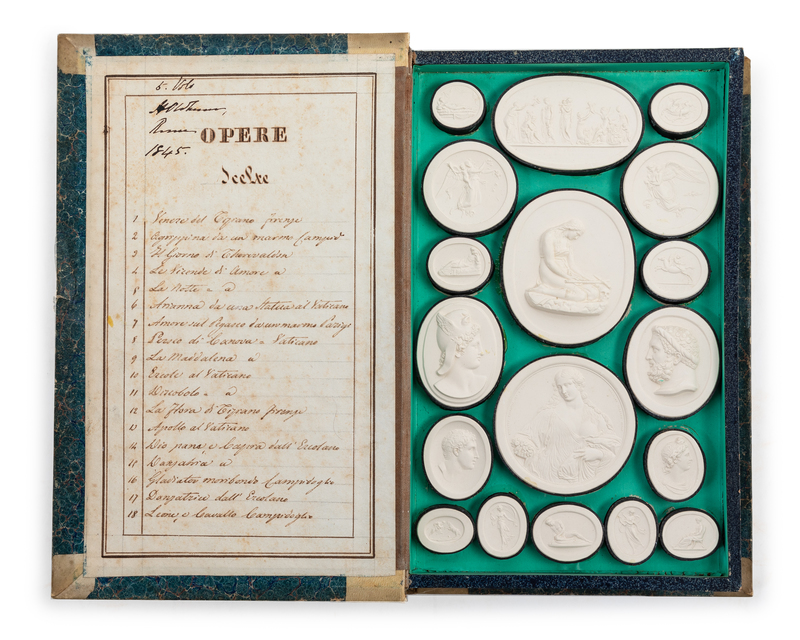 5. Vols
Rome
1845.
OPERE
Scelte
1 Venere del Tiziano firenze
2 da un marmo Campid°
3 Il Giorno di Thorvaldsen
4 Le Vicende di Amore a
5 La Notte - a
6 Arrianna da una Statua al Vaticano
7 Amore sul da un marmo
8 Perseo di Canova - Vaticano
9 La Maddalena a
10 Ercole al Vaticano
11 Discobolo - a
12 La flora di Tiziano firenze
13 Apollo al Vaticano
14 Dio pane, e Capra dall' Ercolano
15 Danzatrice a
16 Gladiator moribondo Campidoglio
17 Danzatrice dall' Ercolano
18 Leone, e Cavallo Campidoglio